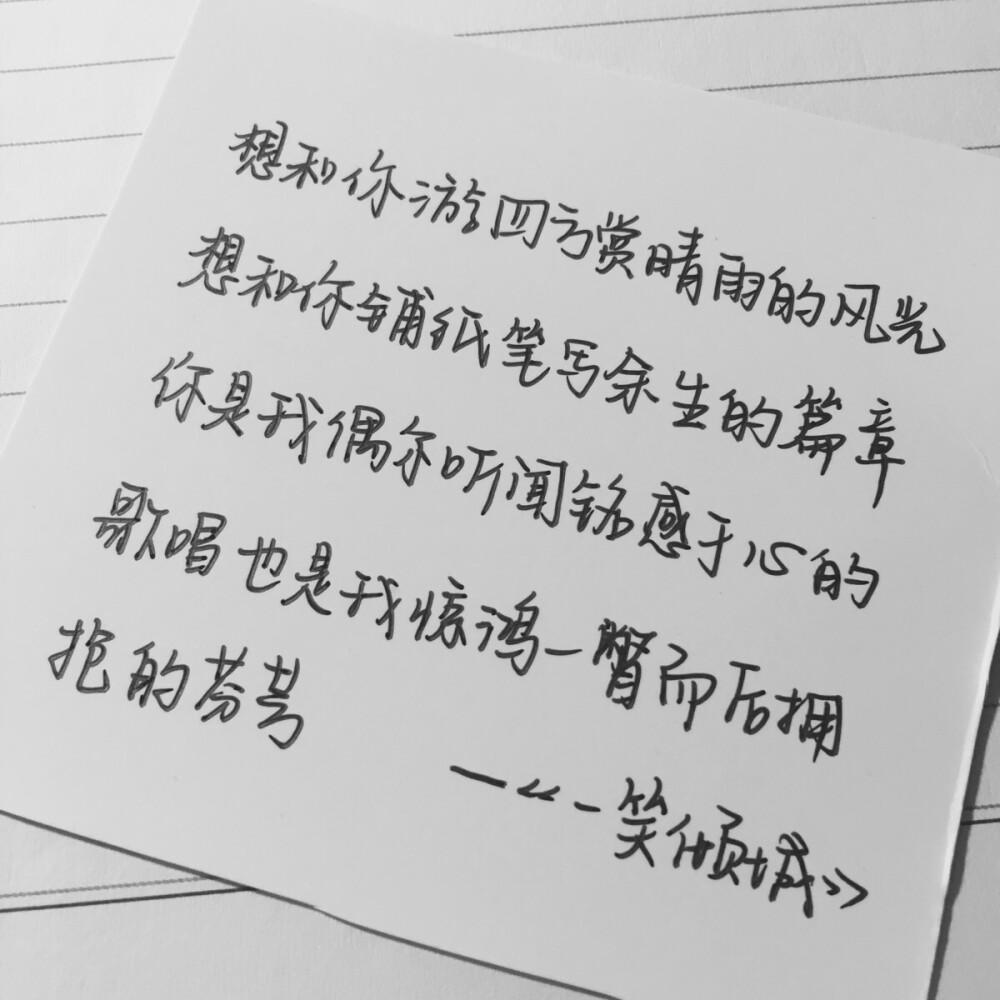 想和你游四方赏晴雨的风光
想和你铺纸笔写余生的篇章
你是我偶尔听闻铭感于心的
歌唱也是我惊鸿一瞥而后拥
抱的芬芳
—《一笑倾城》